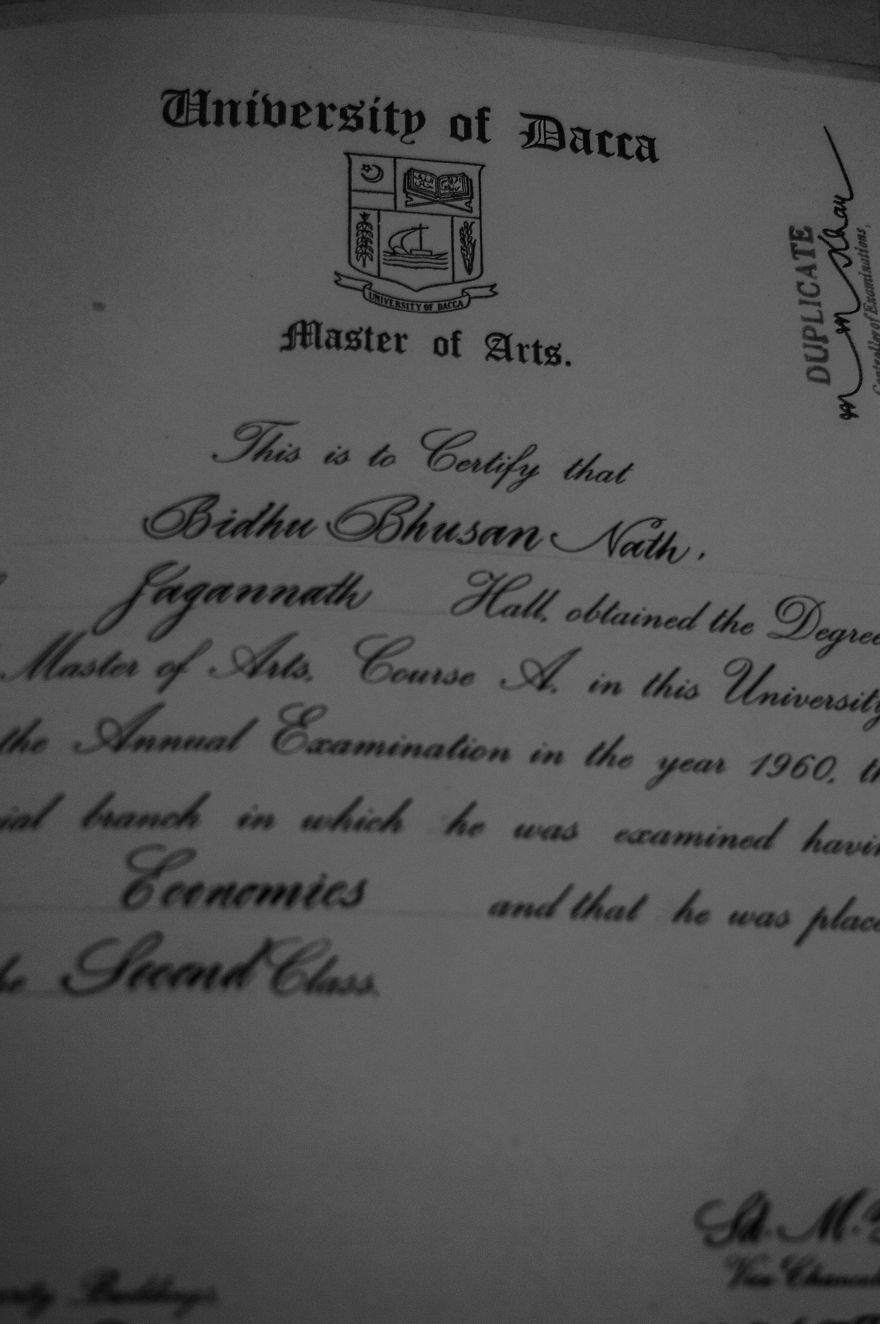 University of Dacca
UNIVERSITY OF DACCA
Master of Arts.
DUPLICATE
Controller of Examinations,
This is to Certify that
Bidhu Bhusan Nath,
Jagannath Hall, obtained the Degree
Master of Arts, Course A, in this University
the Annual Examination in the year 1960, th
ial branch in which he was examined havin
Economics and that he was place
he Second Class.
Sd. M.
Vice Chancel
Buildings